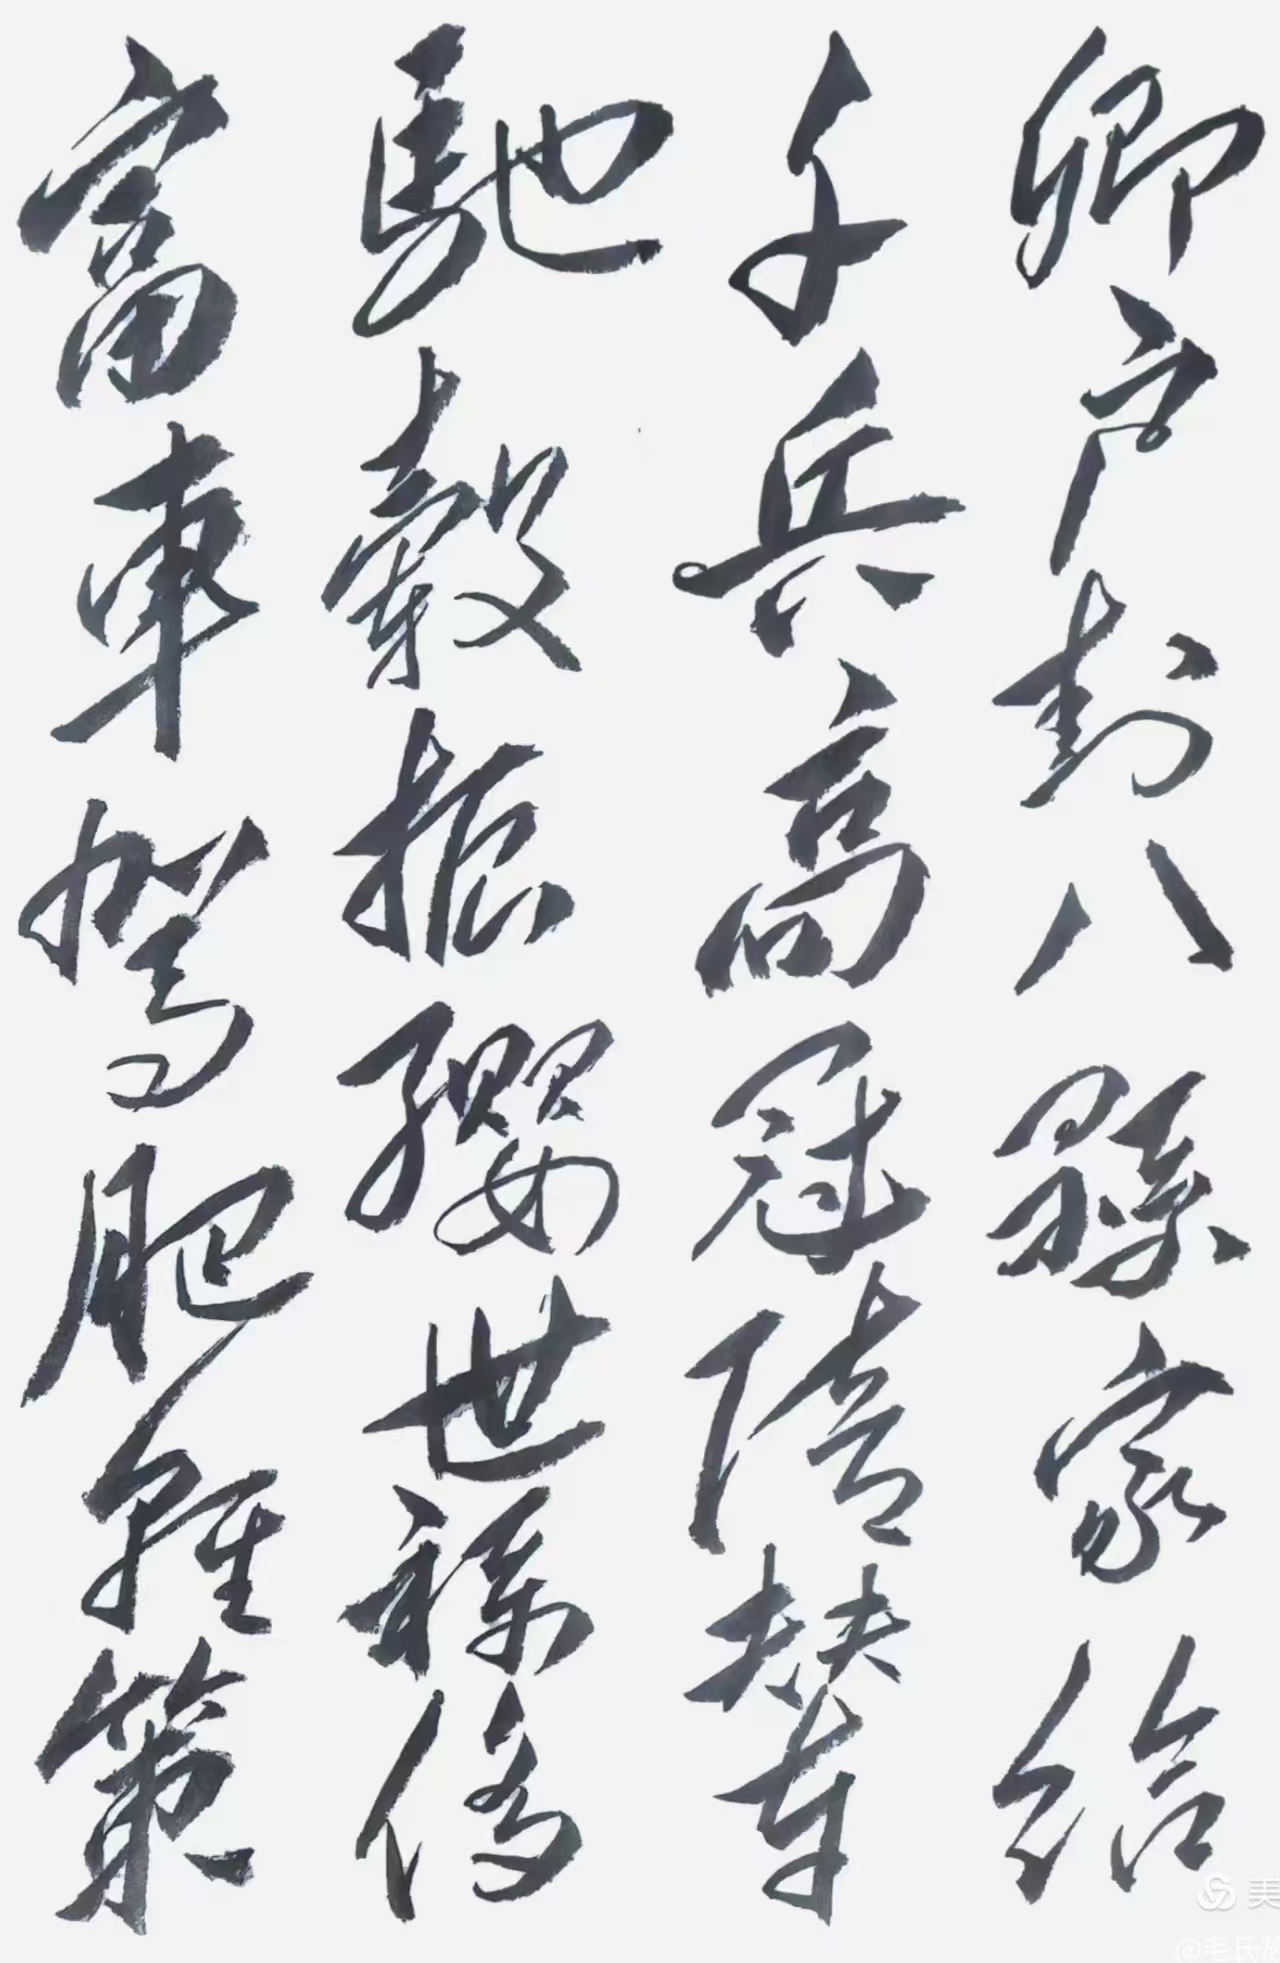 卿户封八縣家給
千兵高冠陪輦
驰轂振纓世禄侈
富車驾肥輕策
美
@毛氏